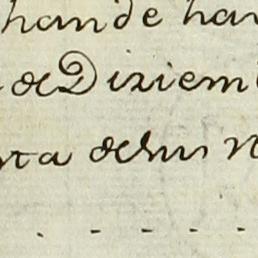 han de ha
de Diziem
ta de sus